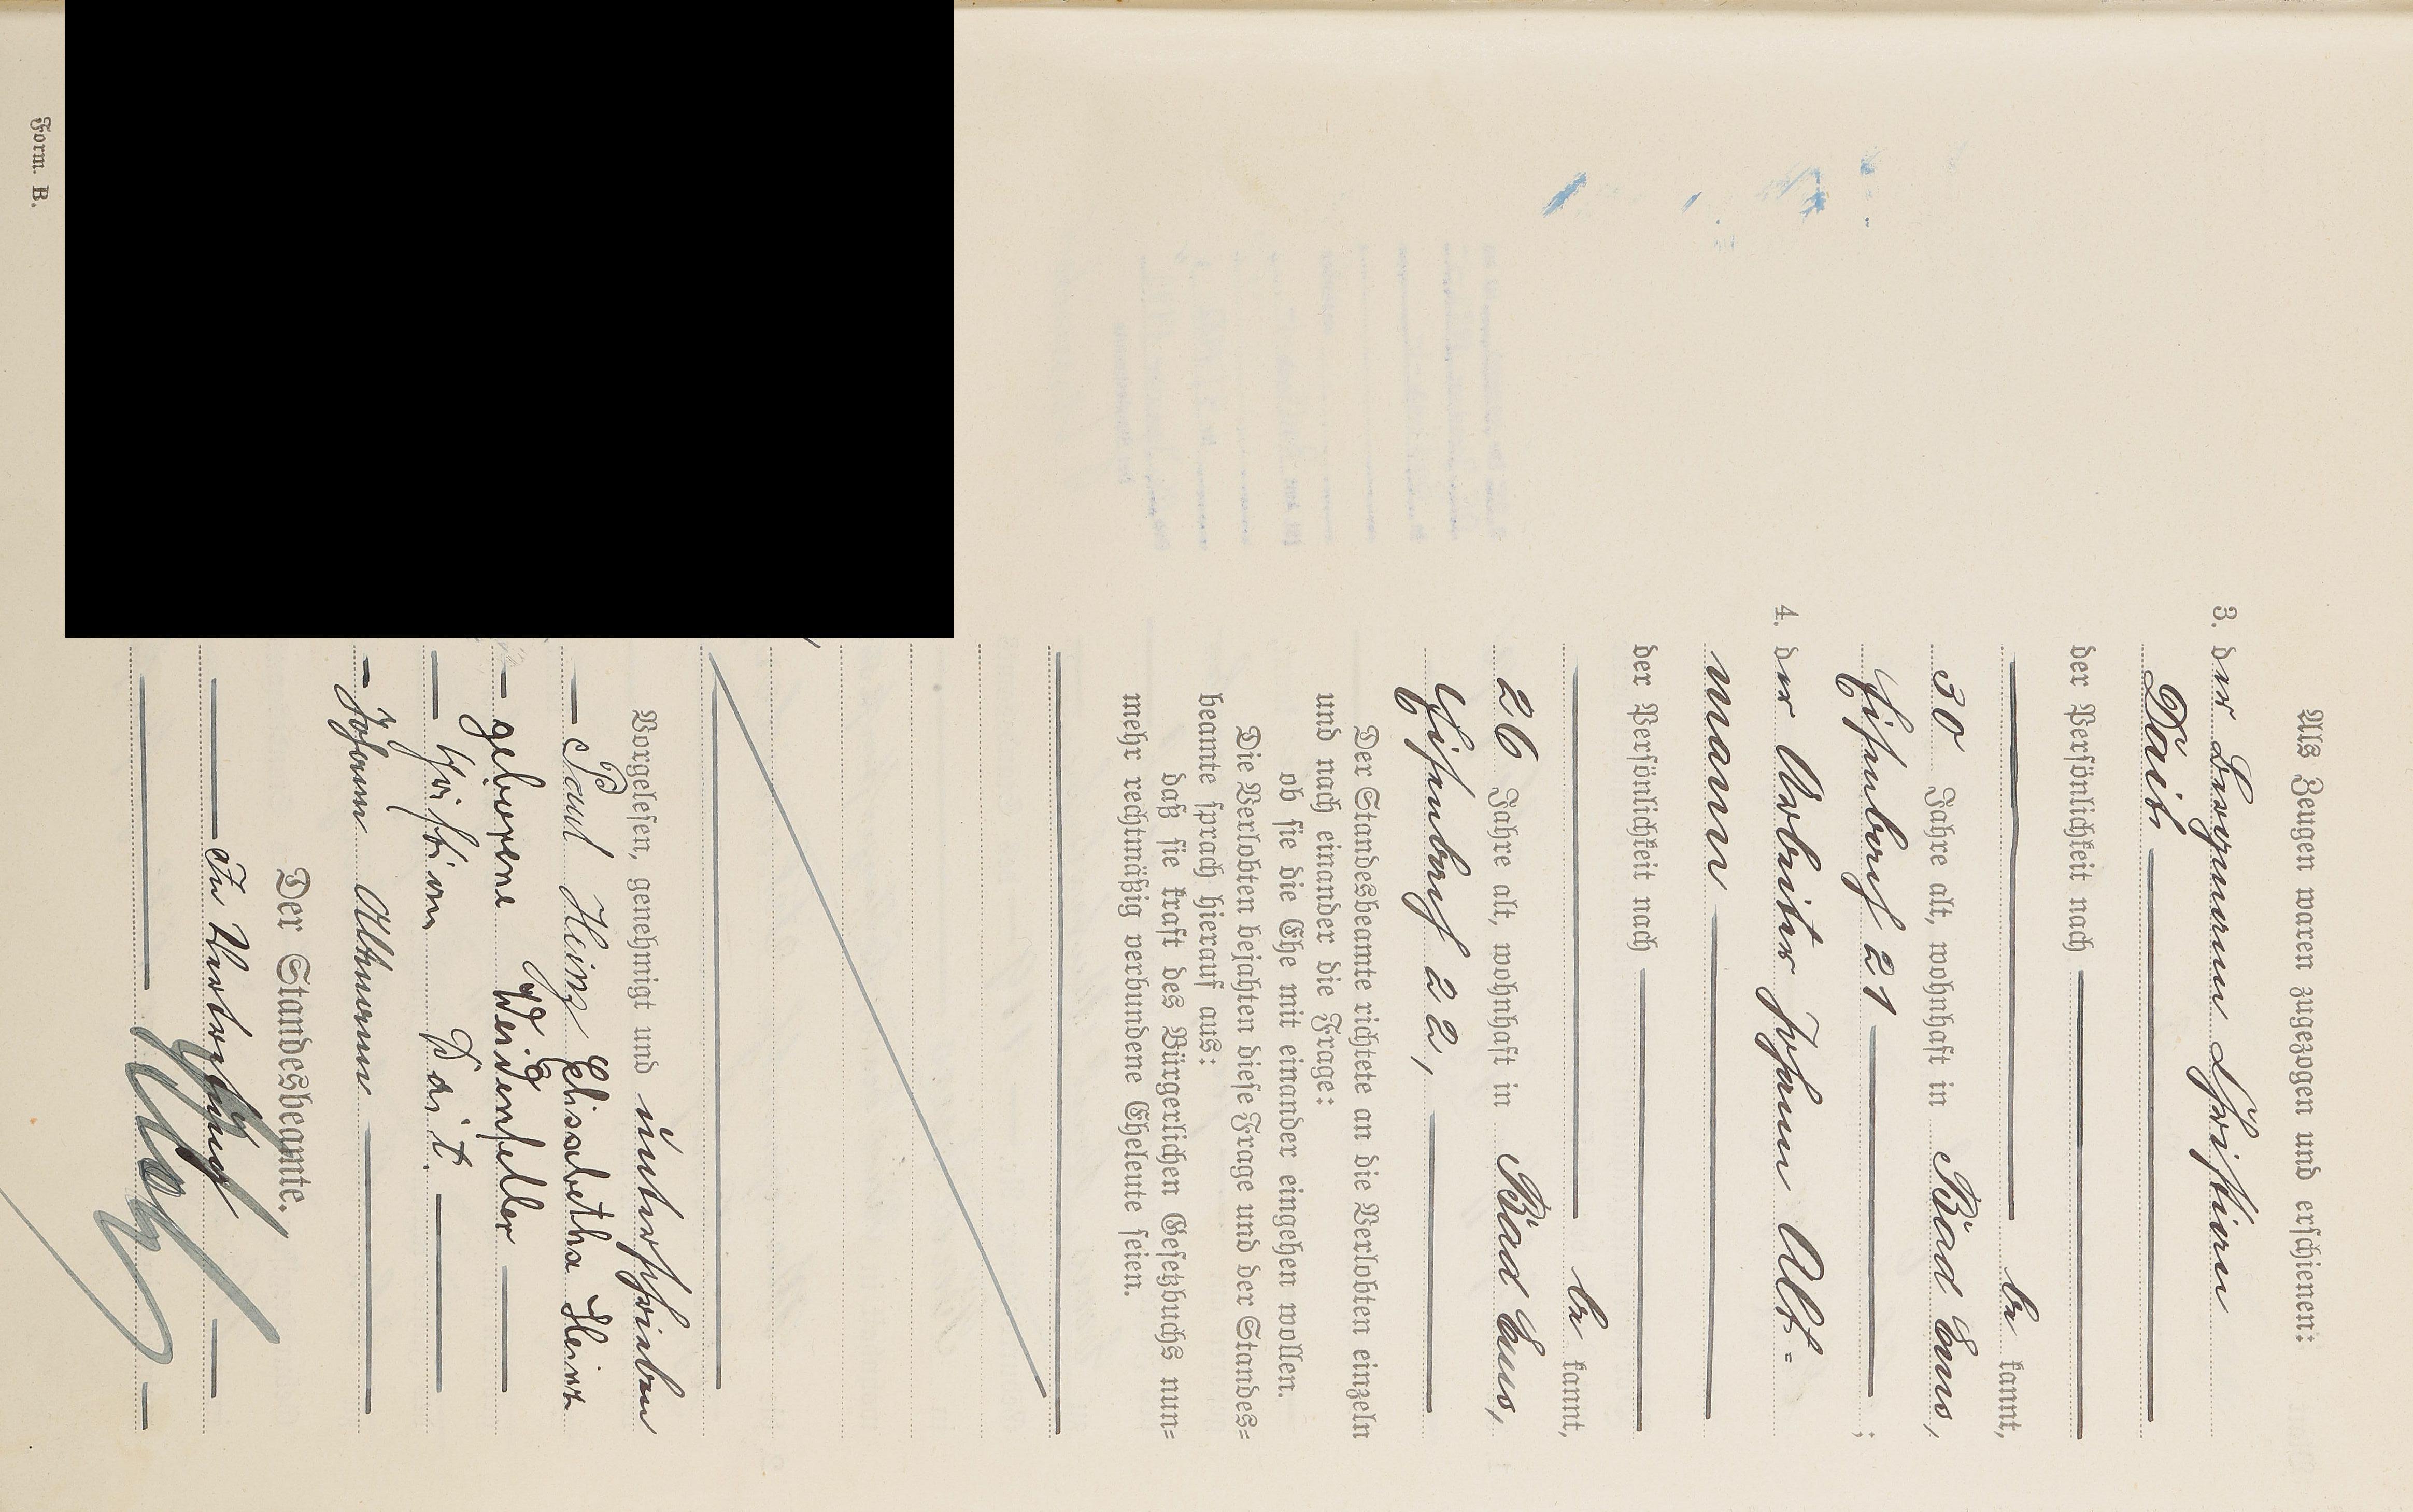 Als Zeugen waren zugezogen und erschienen:
3. der Bergmann Christian
Dait,
der Persönlichkeit nach
be kannt,
30 Jahre alt, wohnhaft in Bad Ems,
Eisenbach 21 ;
4. der Arbeiter Johann Alt-
mann
der Persönlichkeit nach
be kannt,
26 Jahre alt, wohnhaft in Bad Ems,
Eisenbach 22,
Der Standesbeamte richtete an die Verlobten einzeln
und nach einander die Frage:
ob sie die Ehe mit einander eingehen wollen.
Die Verlobten bejahten diese Frage und der Standes=
beamte sprach hierauf aus:
daß sie kraft des Bürgerlichen Gesetzbuchs nun=
mehr rechtmäßig verbundene Eheleute seien.
Vorgelesen, genehmigt und unterschrieben
Paul Heinz Elisabetha Heinz
geborene Weidenfeller
Christian Dait.
Johann Altmann
Der Standesbeamte.
In Vertretung
Form. B.